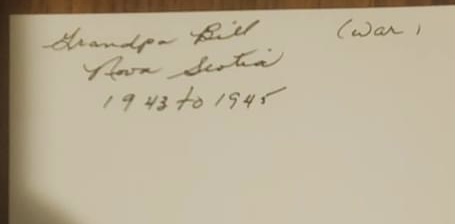 Grandpa Bill (war)
Nova Scotia
1943 to 1945